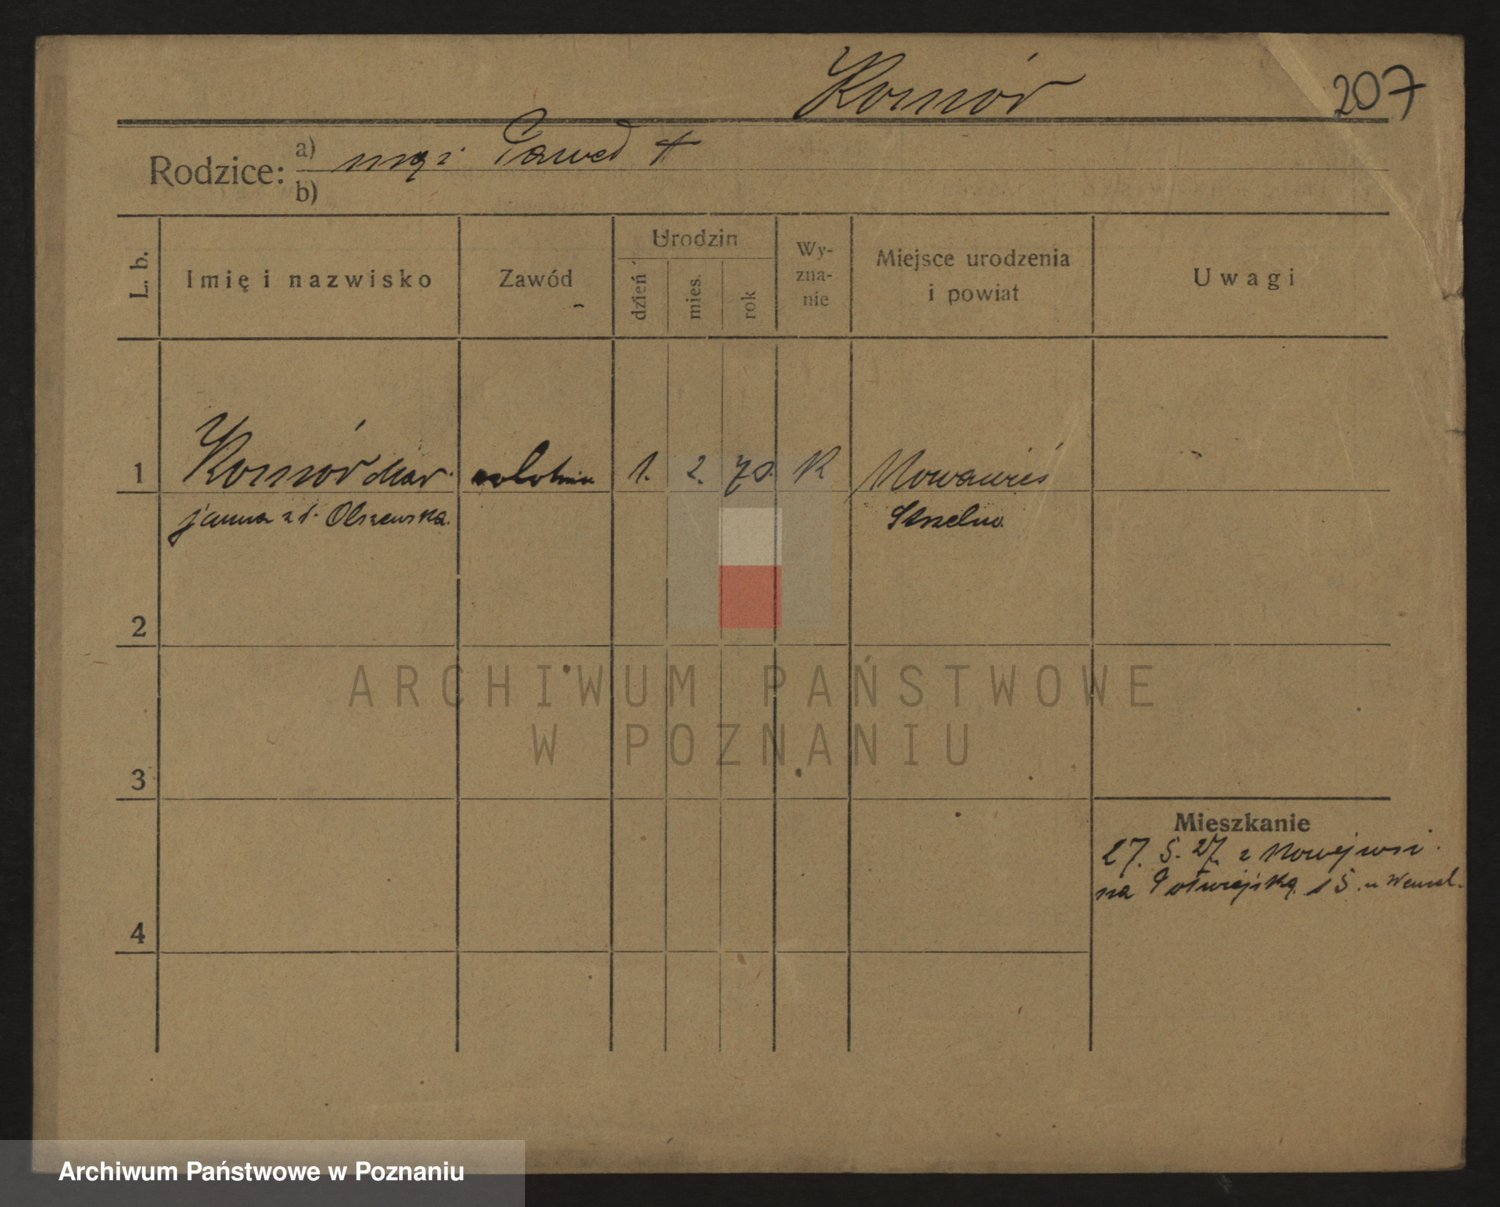 Komór 207
Rodzice: a) mąż Paweł +
b)
L. b. Imię i nazwisko Zawód Urodzin dzień mies. rok Wy-zna-nie Miejsce urodzenia i powiat Uwagi
1 Komór Mar- 1. 2. 70. K Nowawieś
janna z d. Olszewska Strzelno
2
ARCHIWUM PAŃSTWOWE
W POZNANIU
3
Mieszkanie
27. 5. 27. z Nowejwsi
na 15. u
4
Archiwum Państwowe w Poznaniu